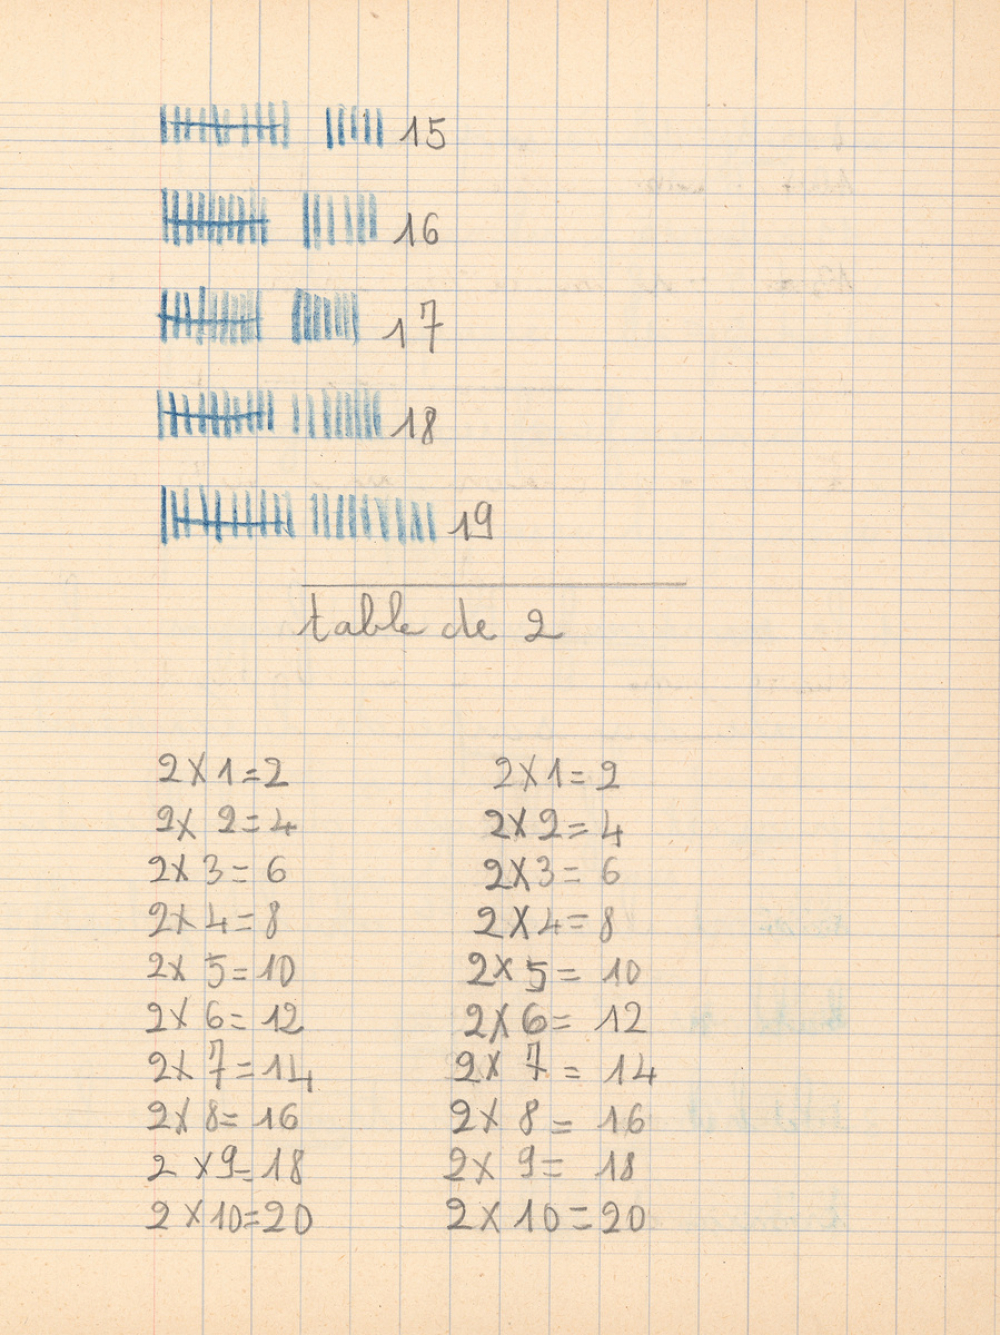 15
16
17
18
19
table de 2
2 x 1 = 2
2 x 2 = 4
2 x 3 = 6
2 x 4 = 8
2 x 5 = 10
2 x 6 = 12
2 x 7 = 14
2 x 8 = 16
2 x 9 = 18
2 x 10 = 20
2 x 1 = 2
2 x 2 = 4
2 x 3 = 6
2 x 4 = 8
2 x 5 = 10
2 x 6 = 12
2 x 7 = 14
2 x 8 = 16
2 x 9 = 18
2 x 10 = 20